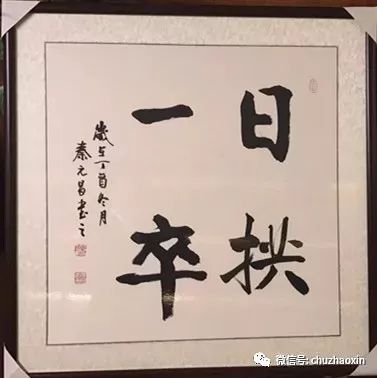 日拱
一卒
歲至丁酉冬月
秦元昌書之
微信号: chuzhaoxin